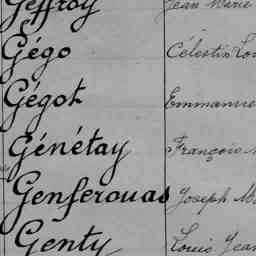 Jeffroy Jean Marie
Gégo Célestin
Gégot
Génétay François
Genferouas Joseph
Genty Louis Jean